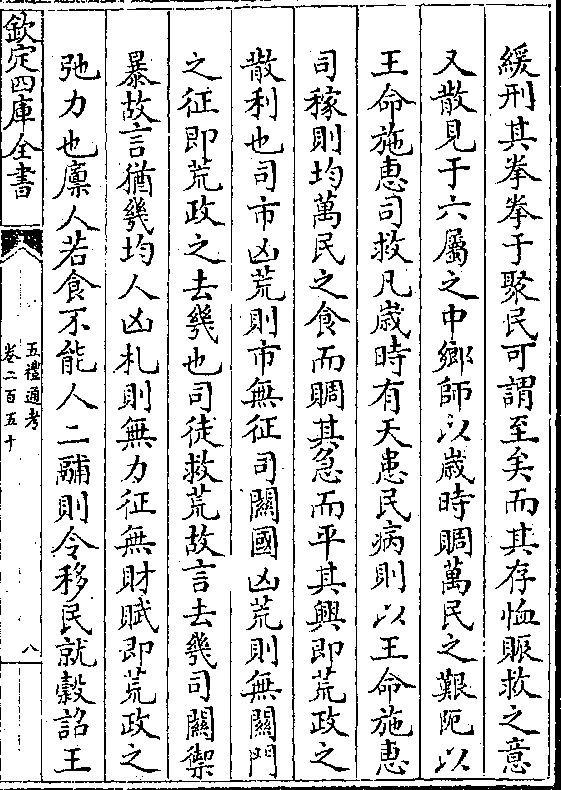 緩刑其拳拳于聚民可謂至矣而其存恤賑救之意
又散見于六屬之中鄉師以歲時賙萬民之艱阨以
王命施惠司救凡歲時有天患民病則以王命施惠
司稼則均萬民之食而賙其急而平其興即荒政之
散利也司市凶荒則市無征司關國凶荒則無關門
之征即荒政之去幾也司徒救荒故言去幾司關禦
暴故言猶幾均人凶札則無力征無財賦即荒政之
弛力也廩人若食不能人二鬴則令移民就穀詔王
欽定四庫全書
五禮通考
卷二百五十
八